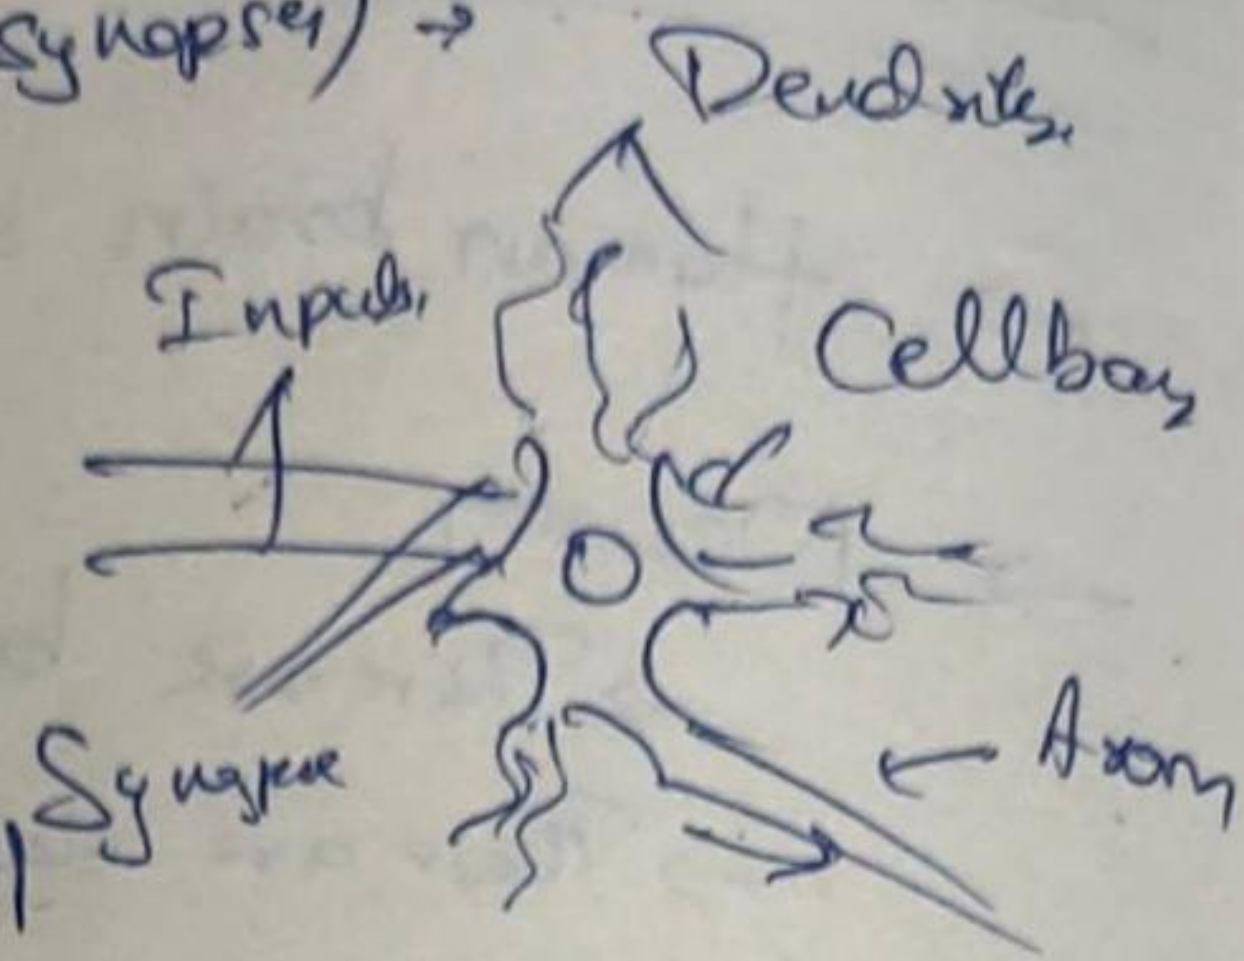 Synapses) →
Dendrites.
Inputs.
Cellbody
Synapse
Axon